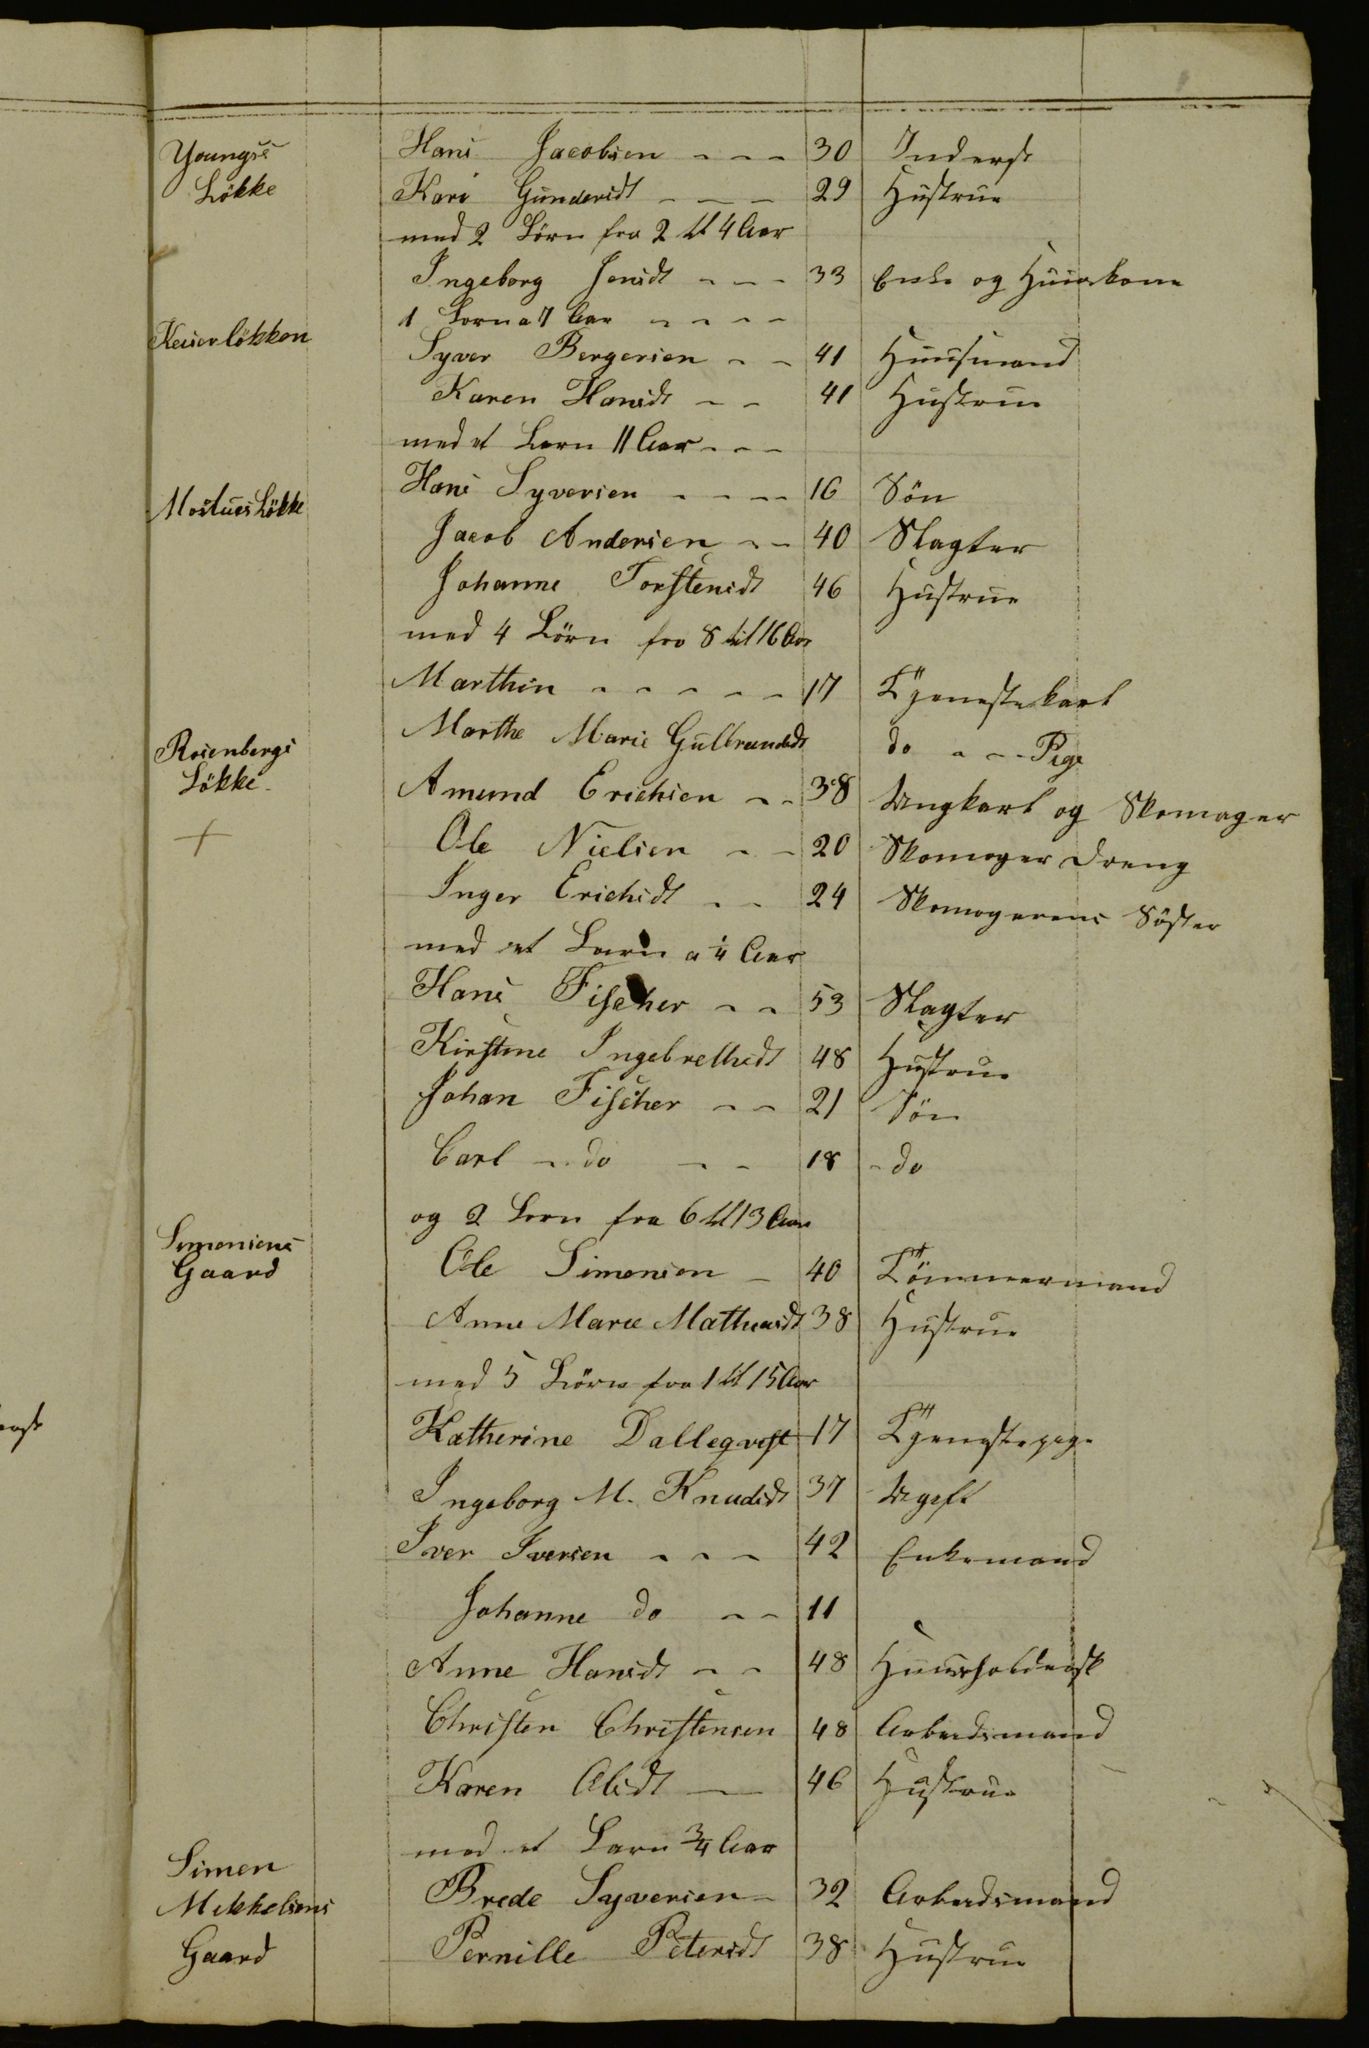 Youngs's Hans Jacobsen - - - 30 Inderst
Lökke Kari Gundersdt - - - 29 Hustrue
med 2 Börn fra 2 til 4 Aar
Ingeborg Jensdt - - - 33 Enke og Huuskone
1 Barn a 7 Aar - - - -
Keiserlökken Syver Bergersen - - 41 Huusmand
Karen Hansdt - - 41 Hustrue
med et Barn 11 Aar - - -
Mostues Lökke Hans Syversen - - - - 16 Sön
Jacob Andersen - - 40 Slagter
Johanne Torstensdt 46 Hustrue
med 4 Börn fra 8 til 16 Aar
Marthin - - - - - 17 Tjenestekarl
Rosenbergs Marthe Marie Gulbrandsdt do - - - Pige
Lökke Amund Erichsen - - 38 Ungkarl og Skomager
+ Ole Nielsen - - 20 Skomager Dreng
Inger Erichsdt - - 24 Skomagerens Söster
med et Barn a 4 Aar
Hans Fischer - - 53 Slagter
Kirstine Ingebrethsdt 48 Hustrue
Johan Fischer - - 21 Sön
Carl - do - - 18 - do
og 2 Börn fra 6 til 13 Aar
Simensens
Gaard Ole Simensen - 40 Tömmermand
Anne Marie Mathiasdt 38 Hustrue
med 5 Börn fra 1 til 15 Aar
Katherine Dalleqvist 17 Tjenestepige
Ingeborg M. Knudsdt 37 Ugift
Iver Iversen - - - 42 Enkemand
Johanne do - - 11
Anne Hansdt - - 48 Huusholdersk
Christen Christensen 48 Arbeidsmand
Karen Olsdt - 46 Hustrue
med et Barn 3/4 Aar
Simen
Mikkelsens Brede Syversen - 32 Arbeidsmand
Gaard Pernille Petersdt 38 Hustrue